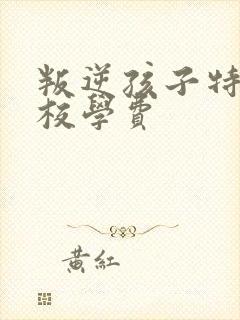 叛逆孩子特
校學費
黃紅